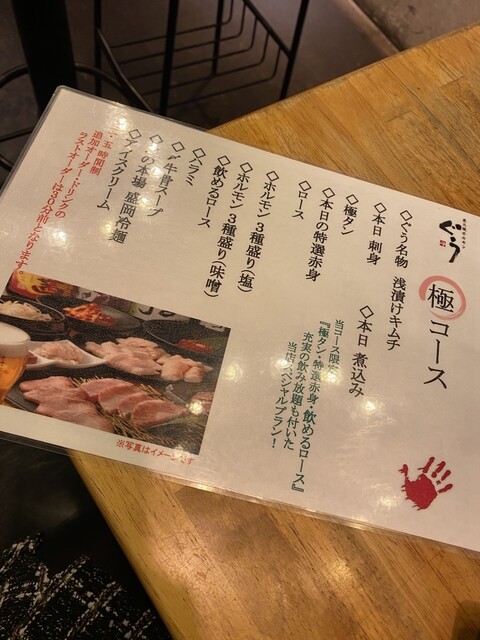 ぐう
極コース
◇ぐう名物 浅漬けキムチ
◇本日 刺身
◇本日 煮込み
◇極タン
◇本日の特選赤身
◇ロース
◇ホルモン3種盛り(塩)
◇ホルモン3種盛り(味噌)
飲めるロース
◇ハラミ
牛骨スープ
の本場 盛岡冷麺
◇アイスクリーム
五時間制
追加オーダー・ドリンクの
ラストオーダーは30分前となります。
当コース限定
『極タン・特選赤身・飲めるロース』
充実の飲み放題も付いた
当店スペシャルプラン!
※写真はイメージです